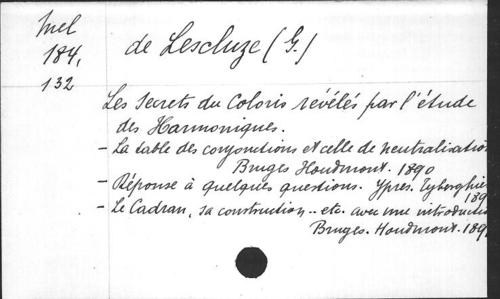 Mel
184,
132
de Lescluze (G.)
Les Secrets du Coloris révélés par l'étude
des Harmoniques.
- La table des conjonctions et celle de neutralisation
Bruges Houdmont. 1890
- Réponse à quelques questions. Ypres. Tyborghie
189
- Le Cadran, sa construction .. etc. avec une introductio
Bruges. Houdmont. 189